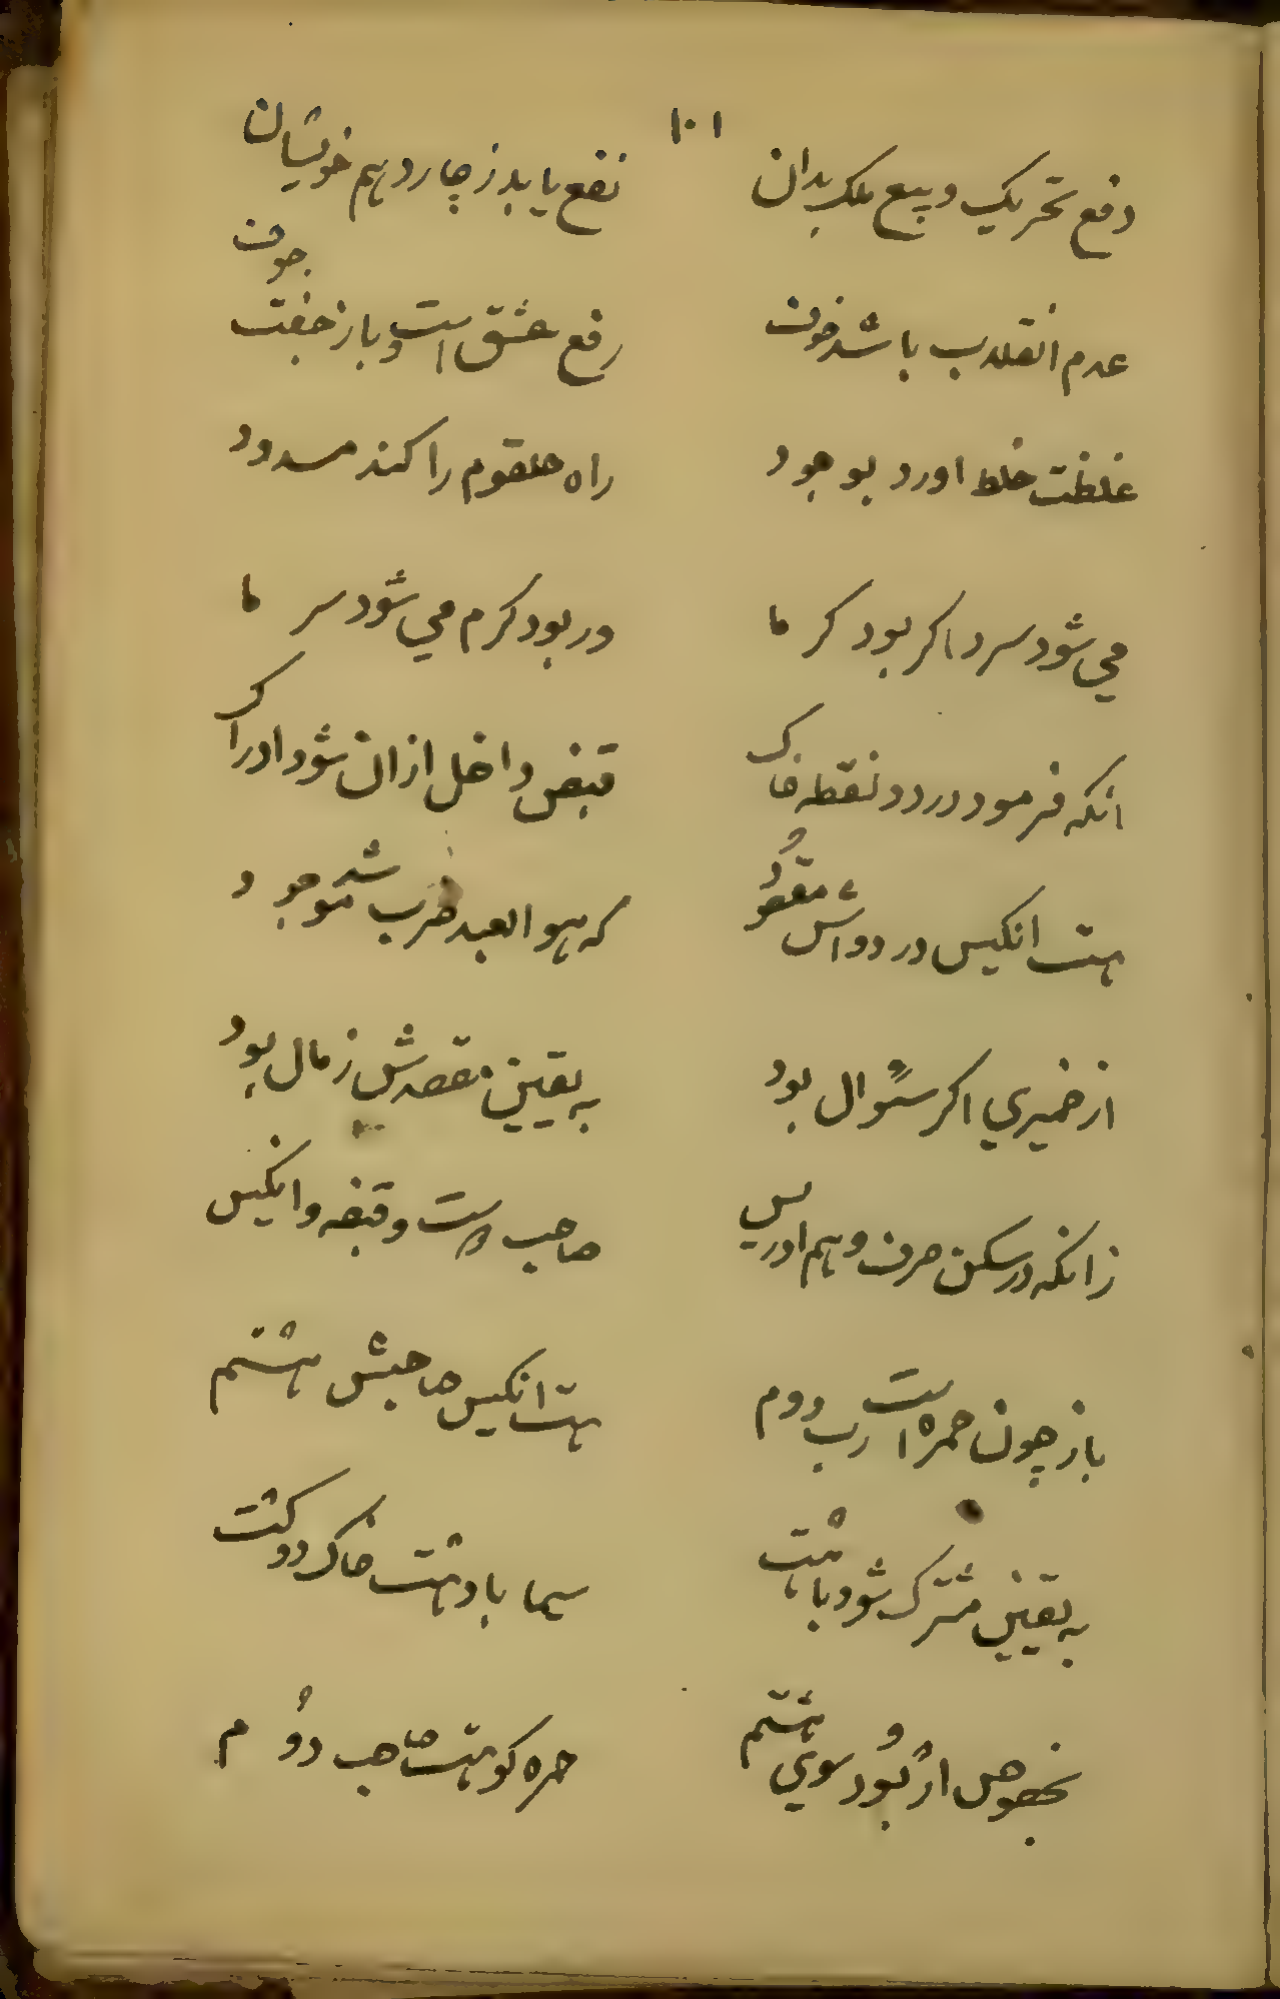 ۱۰۱
دفع تحریک و بیع ملک بدان نفع یابد ز چاردهم خویشان
عدم انقلاب باشد خون رفع عشق است و باز جفت جون
غلظت خلط اورد بوجود راه حلقوم را کند مسدود
می شود سرد اکر بود کرما ور بود کرم می شود سرما
انکه فرمود در دو نقطه خاک قبض داخل ازان شود ادراک
هست انکیس در دو اتش مفقود که هو العبد ضرب شد موجود
از ضمیری اکر سئوال بود به یقین مقصدش ز مال بود
زانکه در سکن حرف و هم ادریس صاحب است و قبضه و انکیس
باز چون حمره است رب دوم هست انکیس صاحبش هشتم
به یقین مشترک شود با هشت سیما باد هشت خاک دو کشت
بخصوص ار بود سوی هشتم حمره کو هست صاحب دوم